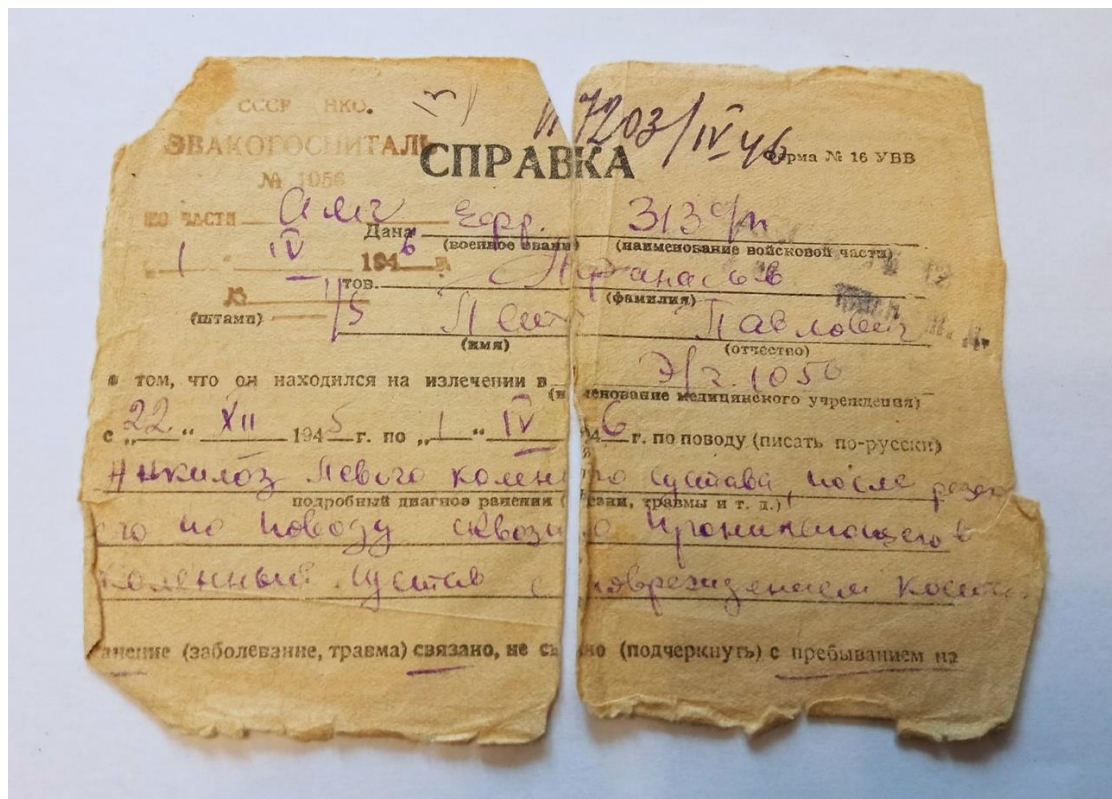 СССР НКО.
ЭВАКОГОСПИТАЛЬ
№ 1056
7203/IV 46
СПРАВКА
Форма № 16 УВВ
ПО ЧАСТИ
1 IV 1946 г.
№
(штамп)
Дана Ефр. 313
(военное звание) (наименование войсковой части)
тов. Афанасьев
(фамилия)
Павлович
(имя) (отчество)
в том, что он находился на излечении в Э/г. 1056
(наименование медицинского учреждения)
с „22“ XII 1945 г. по „1“ IV 46 г. по поводу (писать по-русски)
Анкилоз левого колен го сустава, после резек
подробный диагноз ранения ( зни, травмы и т. д.)
его по поводу сквозно о проникающего в
коленный сустав с повреждением костей
анение (заболевание, травма) связано, не св но (подчеркнуть) с пребыванием на